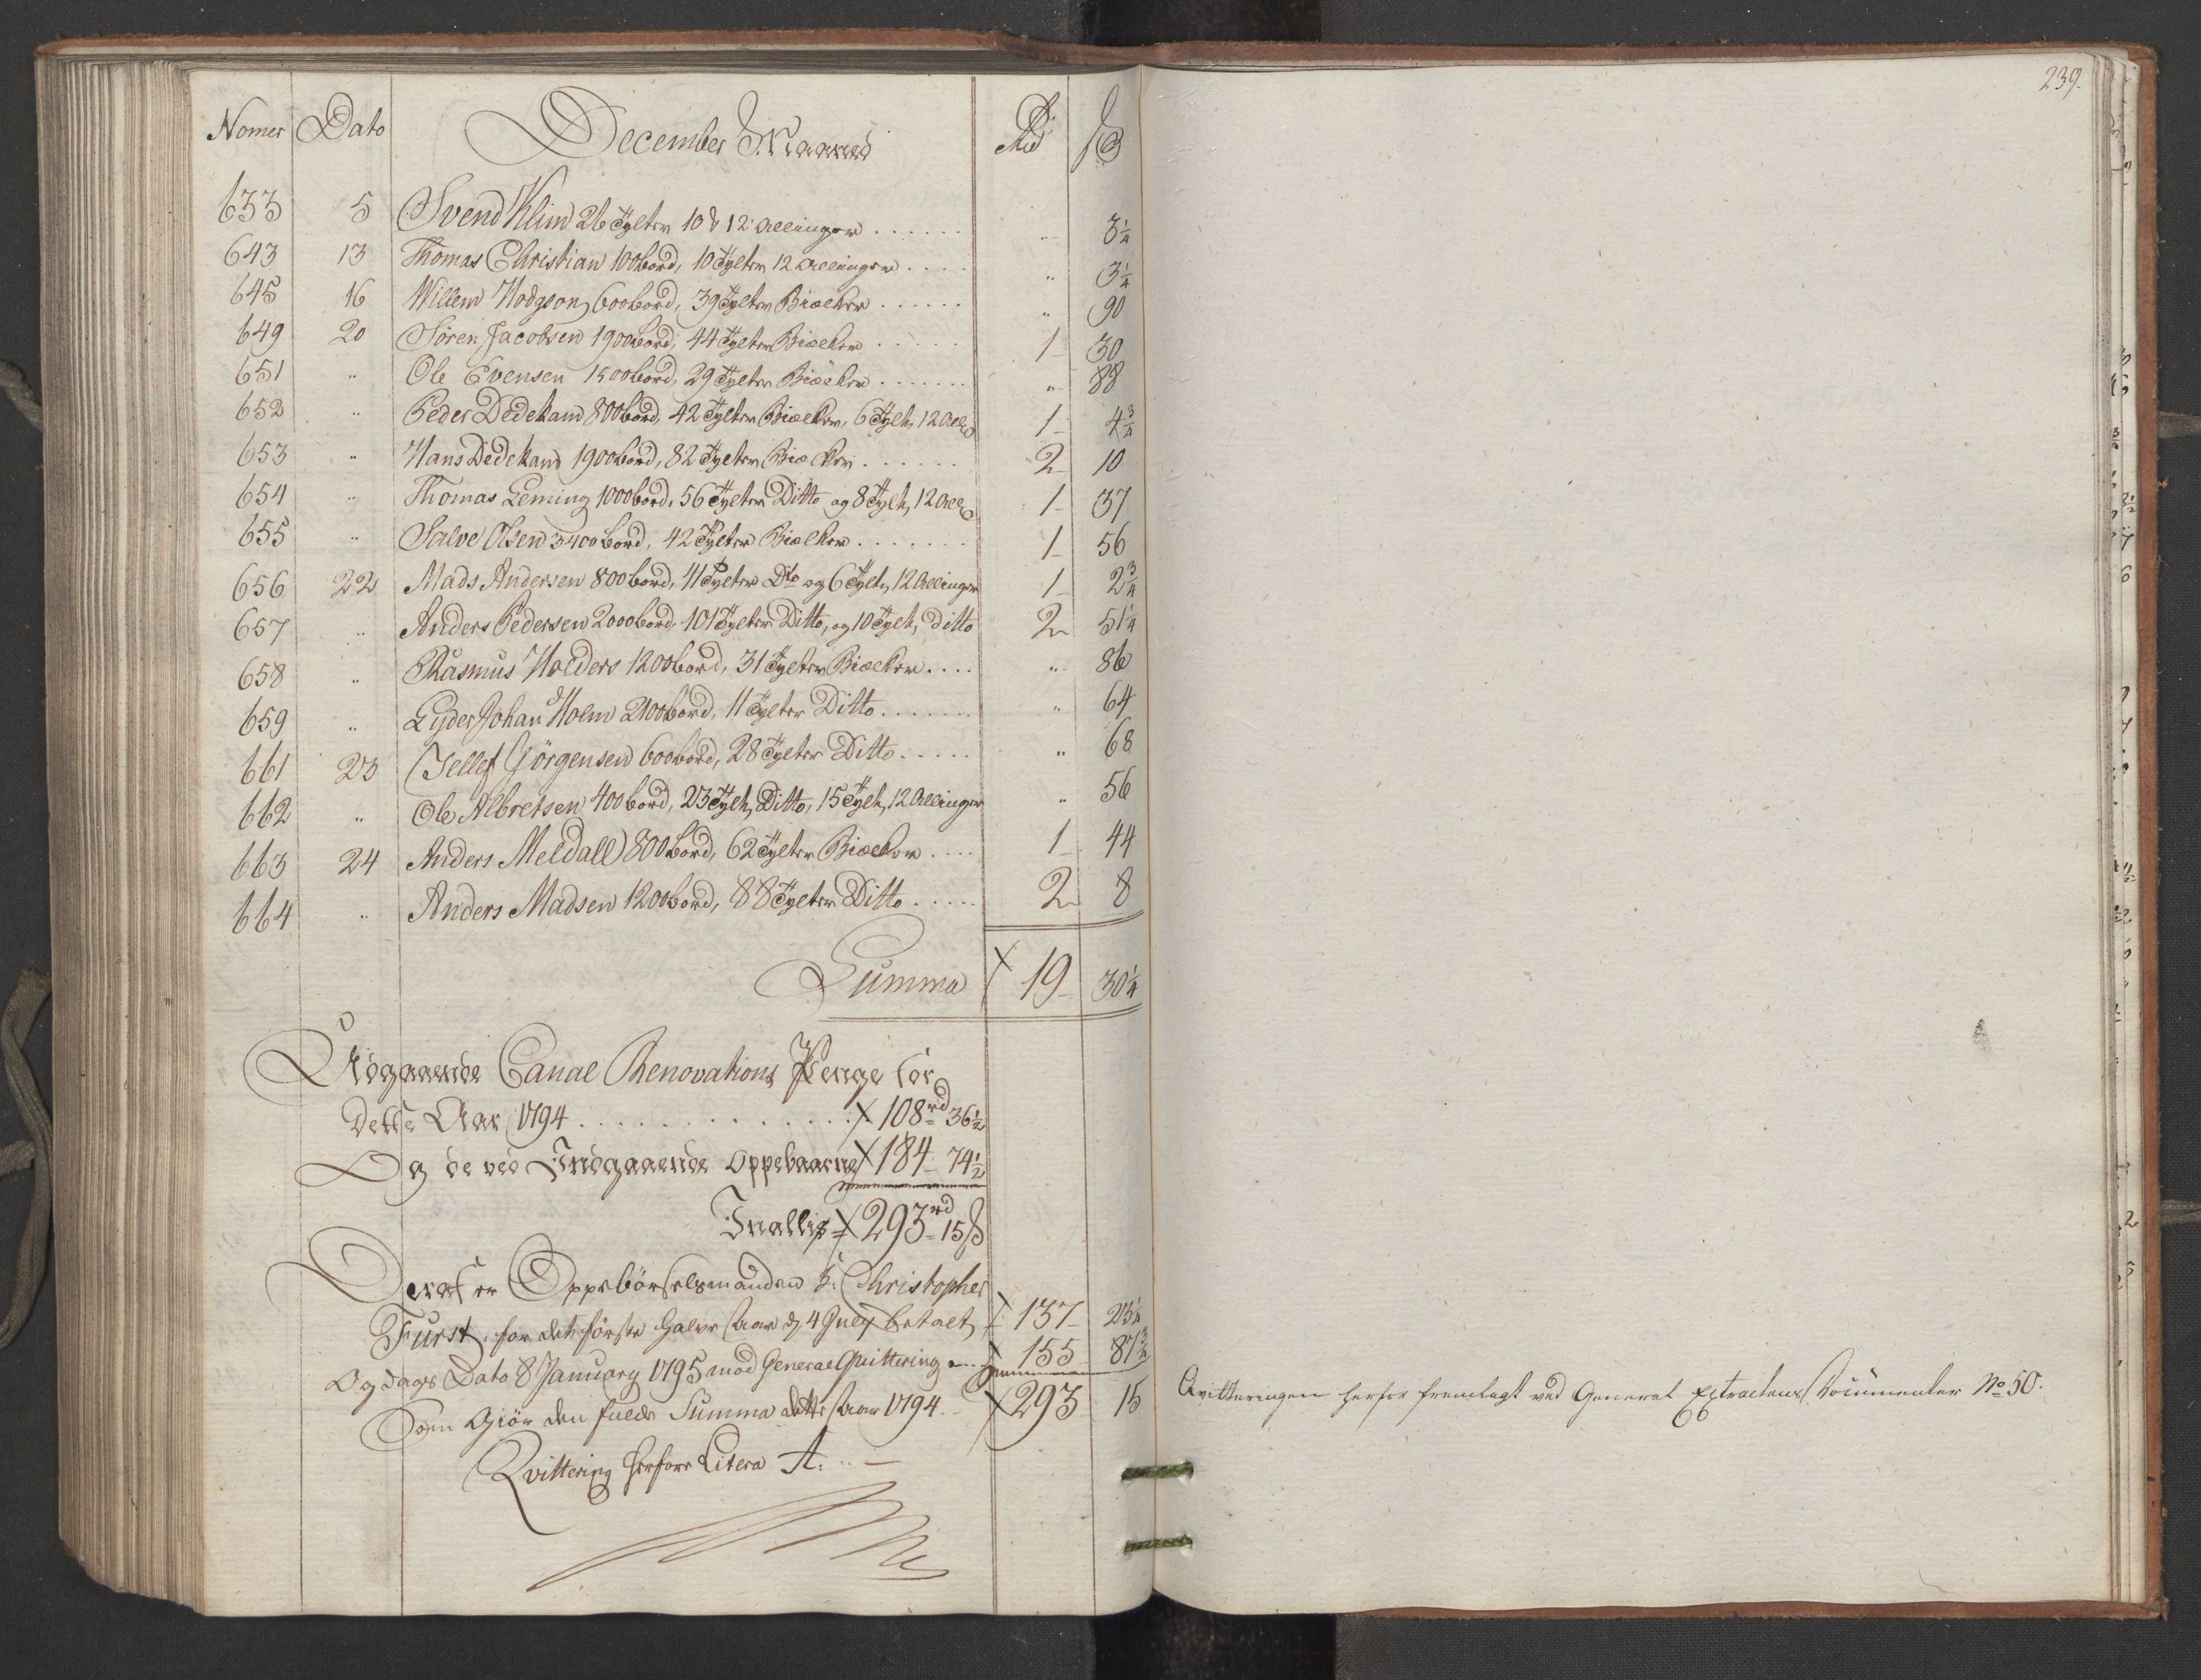 Nomer Dato December Maaned Rd ß
633 5 Svend Klim 26 Tylter 10 & 12 Allinger . . . . . . " 3 1/4
643 13 Thomas Christian 100 bord, 10 Tylter 12 Allinger . . . . " 3 1/4
645 16 Willem Hodgson 600 bord, 39 Tylter Biælker . . . . . . " 90
649 20 Sören Jacobsen 1900 bord, 44 Tylter Biælker . . . . . 1 30
651 " Ole Evensen 1500 bord, 29 Tylter Biælker . . . . . . " 88
652 " Peder Dedekam 800 bord, 42 Tylter Biælker, 6 Tylt, 12 All 1 4 3/4
653 " Hans Dedekam 1900 bord, 82 Tylter Biælker . . . . . . 2 10
654 " Thomas Leming 1000 bord, 56 Tylter Ditto og 8 Tylt, 12 All 1 37
655 " Salve Olsen 3400 bord, 42 Tylter Biælker . . . . . . . 1 56
656 22 Mads Andersen 800 bord, 41 Tylter Dto og 6 Tylt, 12 Allinger 1 2 3/4
657 " Anders Pedersen 2000 bord, 101 Tylter Ditto, og 10 Tylt, ditto 2 51 1/4
658 " Rasmus Holders 1200 bord, 31 Tylter Biælker . . . . " 86
659 " Lyder Johan Holm 2100 bord, 11 Tylter Ditto . . . . . . . " 64
661 23 Tellef Görgensen 600 bord, 28 Tylter Ditto . . . . . " 68
662 " Ole Albretsen 400 bord, 23 Tylt, Ditto, 15 Tylt, 12 Allinger " 56
663 24 Anders Meldall 800 bord, 62 Tylter Biælker . . . . 1 44
664 " Anders Madsen 1200 bord, 88 Tylter Ditto . . . . . 2 8
Summa 19 30 1/4
Udgaaende Canal Renovations Penge for
dette Aar 1794 . . . . . . . . . . . . . 108 rd 36 1/2
Og de ved Indgaaende oppebaarne 184 74 1/2
Inalles 293 rd 15 ß
Deraf er Oppebörselsmanden S: Christopher
Furst, for det förste halve Aar d 4 July betalt 137 23 1/4
Og dags Dato 8 January 1795 mod General Quittering 155 87 3/4
Som Giör den fulde Summa dette Aar 1794 293 15
Qvittering herfore Litera A. . . —
239.
Qvitteringen herfor fremlagt ved General Extractens Documenter No 50.